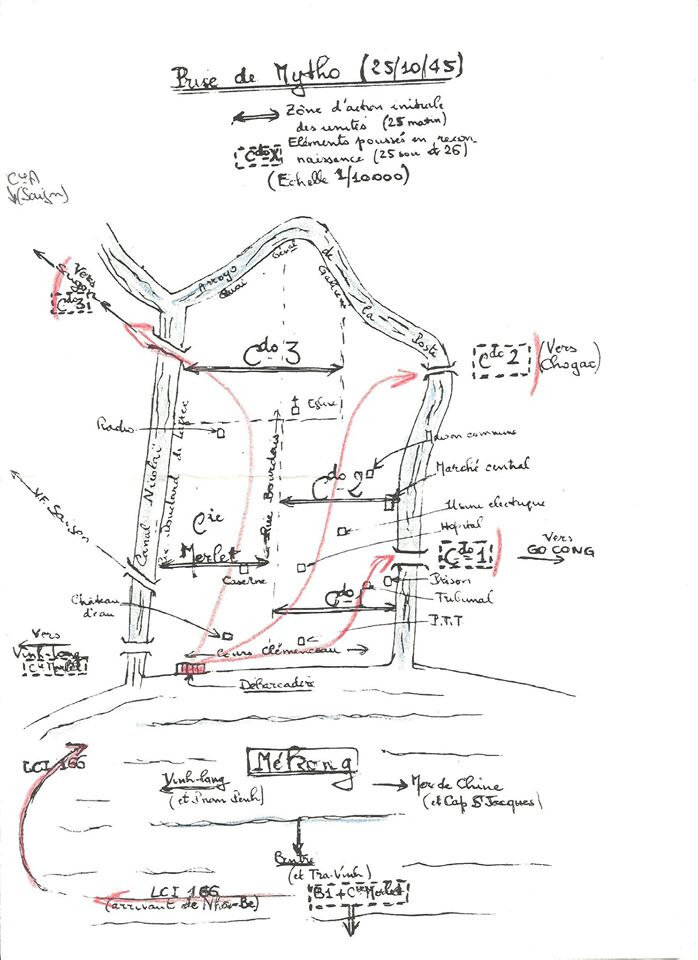 Prise de Mytho (25/10/45)
Zône d'action initiale
des unités (25 matin)
Cdo X
Eléments poussés en recon-
naissance (25 soir et 26)
(Echelle 1/10.000)
Cie A
(Saigon)
Vers
Saigon
Cdo 3
Arroyo de la Poste
Quai Gallieni
Cdo 3
Cdo 2
(Vers
Chogao)
Eglise
Radio
Canal Nicolaï
Rue Bourdais
Maison commune
Marché central
Cdo 2
Cie
Merlet
Usine electrique
Hôpital
V.F. Saigon
Cdo 1
Vers
GO CONG
Caserne
Prison
Tribunal
Cdo 1
P.T.T
Château
d'eau
Vers
Vinh-Long
Cie Merlet
Cours Clémenceau
Débarcadère
LCI 166
Mékong
Vinh-long
(et Pnom Penh)
Mer de Chine
(et Cap St Jacques)
Bentre
(et Tra-Vinh)
LCI 166
(arrivant de Nha-Be)
B1 + Cie Merlet